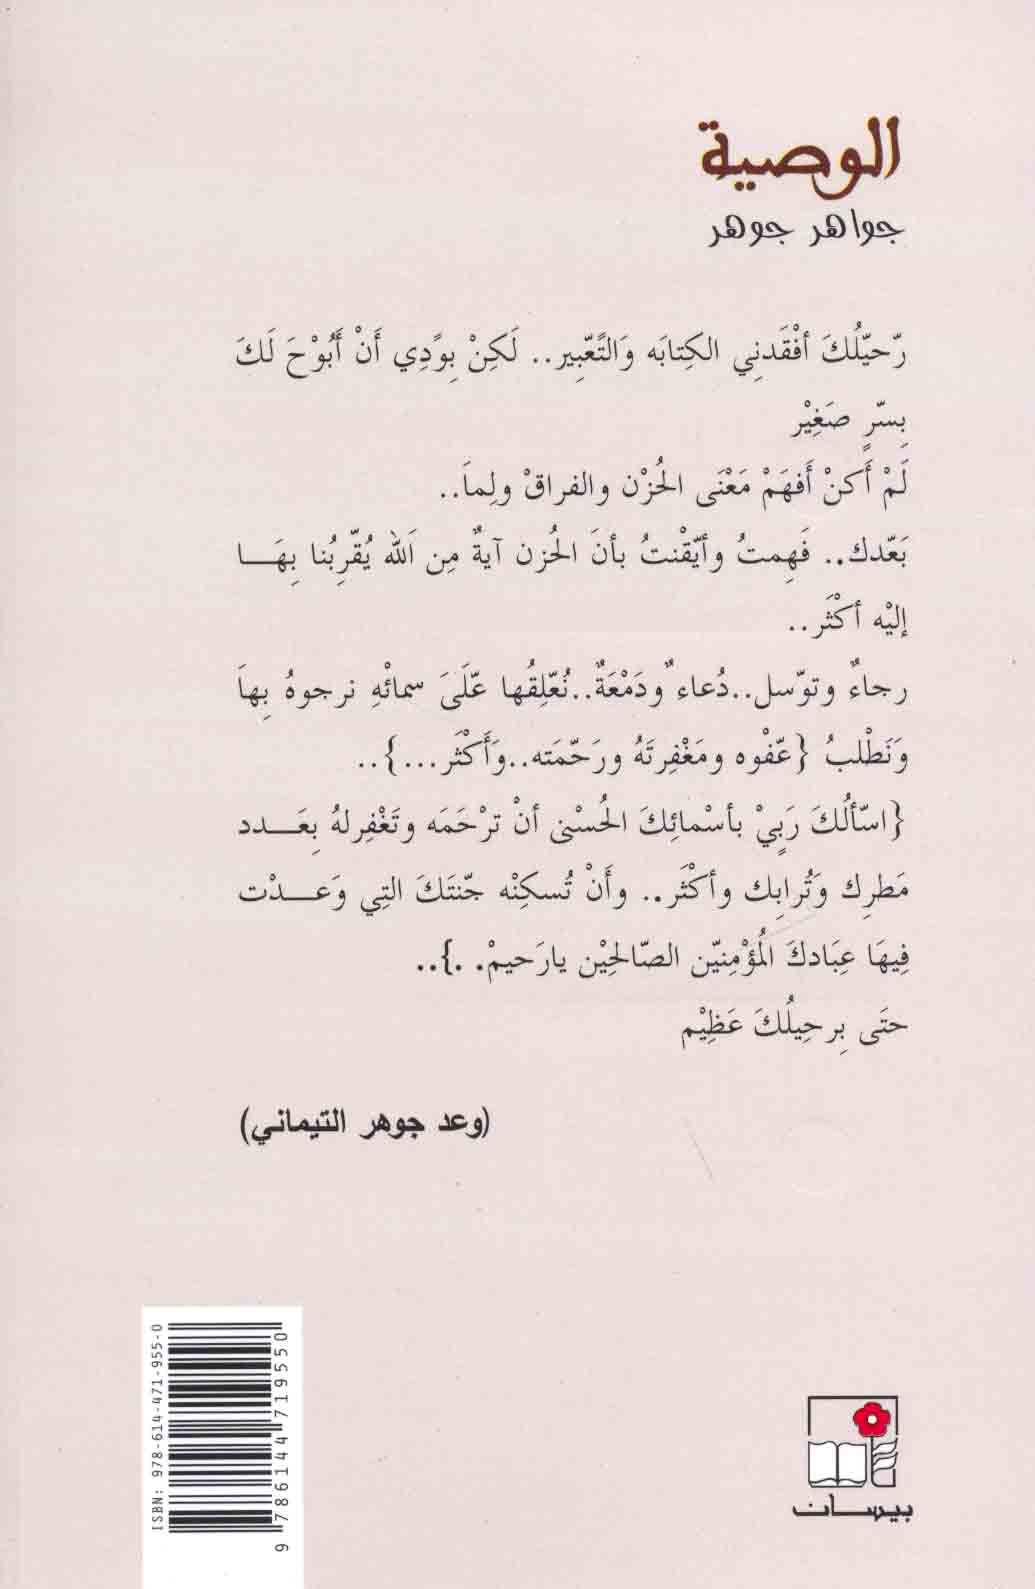 الوصية
جواهر جوهر
رّحيّلُكَ أفْقَدنِي الكِتابَه وَالتًعّبِير.. لَكِنْ بِوًدِي أَنْ أَبُوْحَ لَكَ
بِسّرٍ صَغِيْر
لَمْ أَكنْ أَفهَمْ مَعْنَى الحُزْن والفراقْ ولِماَ..
بَعّدك.. فَهِمتُ وأيّقْنتُ بأنَ الحُزن آيةٌ مِن اَلله يُقّرِبُنا بِهَـــا
إليْه أكْثَر..
رجاءٌ وتوّسل..دُعاءٌ ودَمْعَةٌ..نُعّلِقُها عّلَىَ سمائْهِ نرجوهُ بِهاَ
وَنَطْلبُ {عّفْوه ومَغْفِرتَهُ ورَحّمَته..وَأَكْثَر...}..
{اسّألُكَ رَبِيْ بأسْمائِكَ الحُسْنى أنْ ترْحَمَه وتَغْفِرلهُ بِعَـــدد
مَطرِك وَتُرابِك وأكْثَر.. وأَنْ تُسكِنْه جّنتَكَ التِي وَعـــدْت
فِيهَا عِبَادكَ المُؤْمِنيّن الصّالحِيْن يارَحيمْ. .}..
حتَى بِرحِيلُكَ عَظِيْم
(وعد جوهر التيماني)
ISBN: 978-614-471-955-0
9 786144 719550
بيسـان